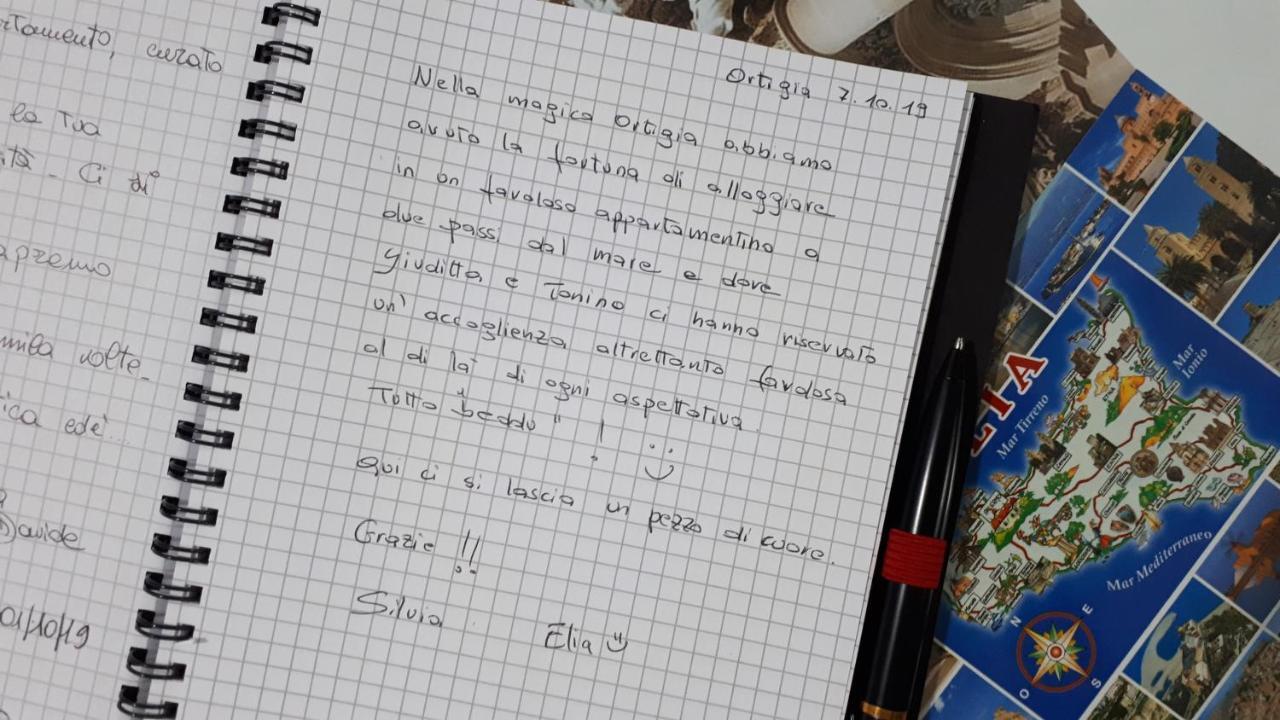 rtamento, curato
la Tua
ità - Ci di
apremo
mila volte -
ica ed è...
Davide
Ortigia 7.10.19
Nella magica Ortigia abbiamo
avuto la fortuna di alloggiare
in un favoloso appartamentino a
due passi dal mare e dove
Giuditta e Tonino ci hanno riservato
un' accoglienza altrettanto favolosa
al di là di ogni aspettativa.
Tutto beddu" !
Qui ci si lascia un pezzo di cuore.
Grazie !!
Silvia Elia
LIA
Mar Tirreno
Mar Ionio
Mar Mediterraneo
N
E
S
O